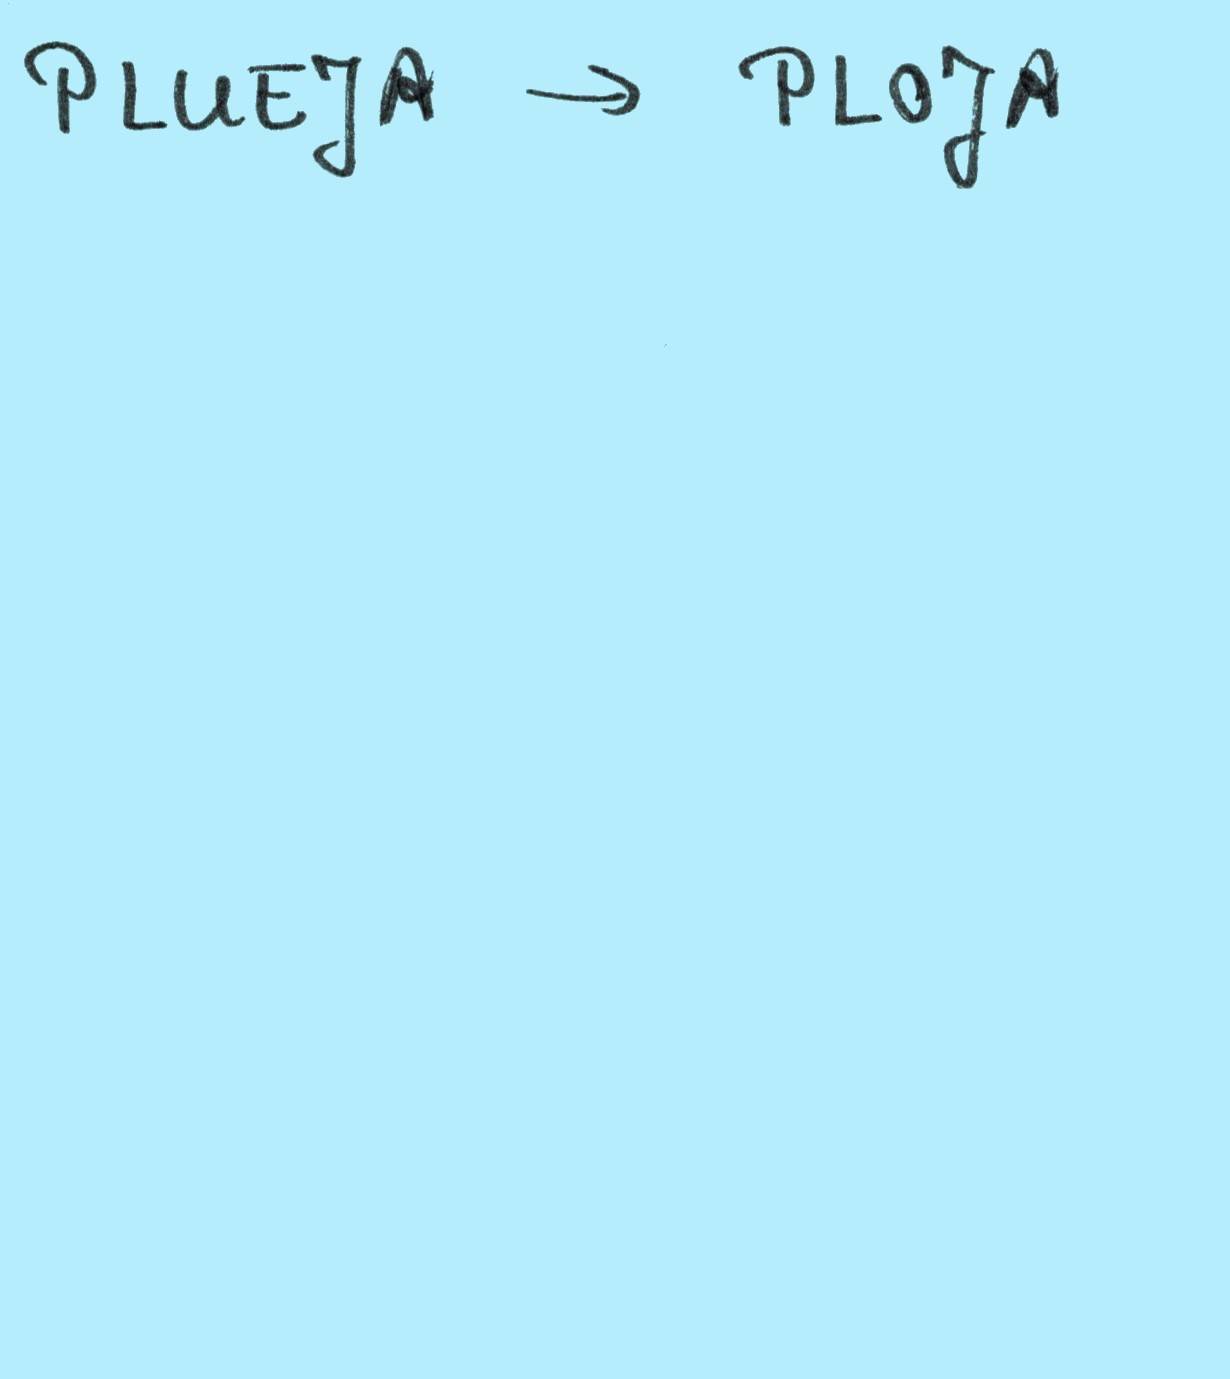 PLUEJA → PLOJA